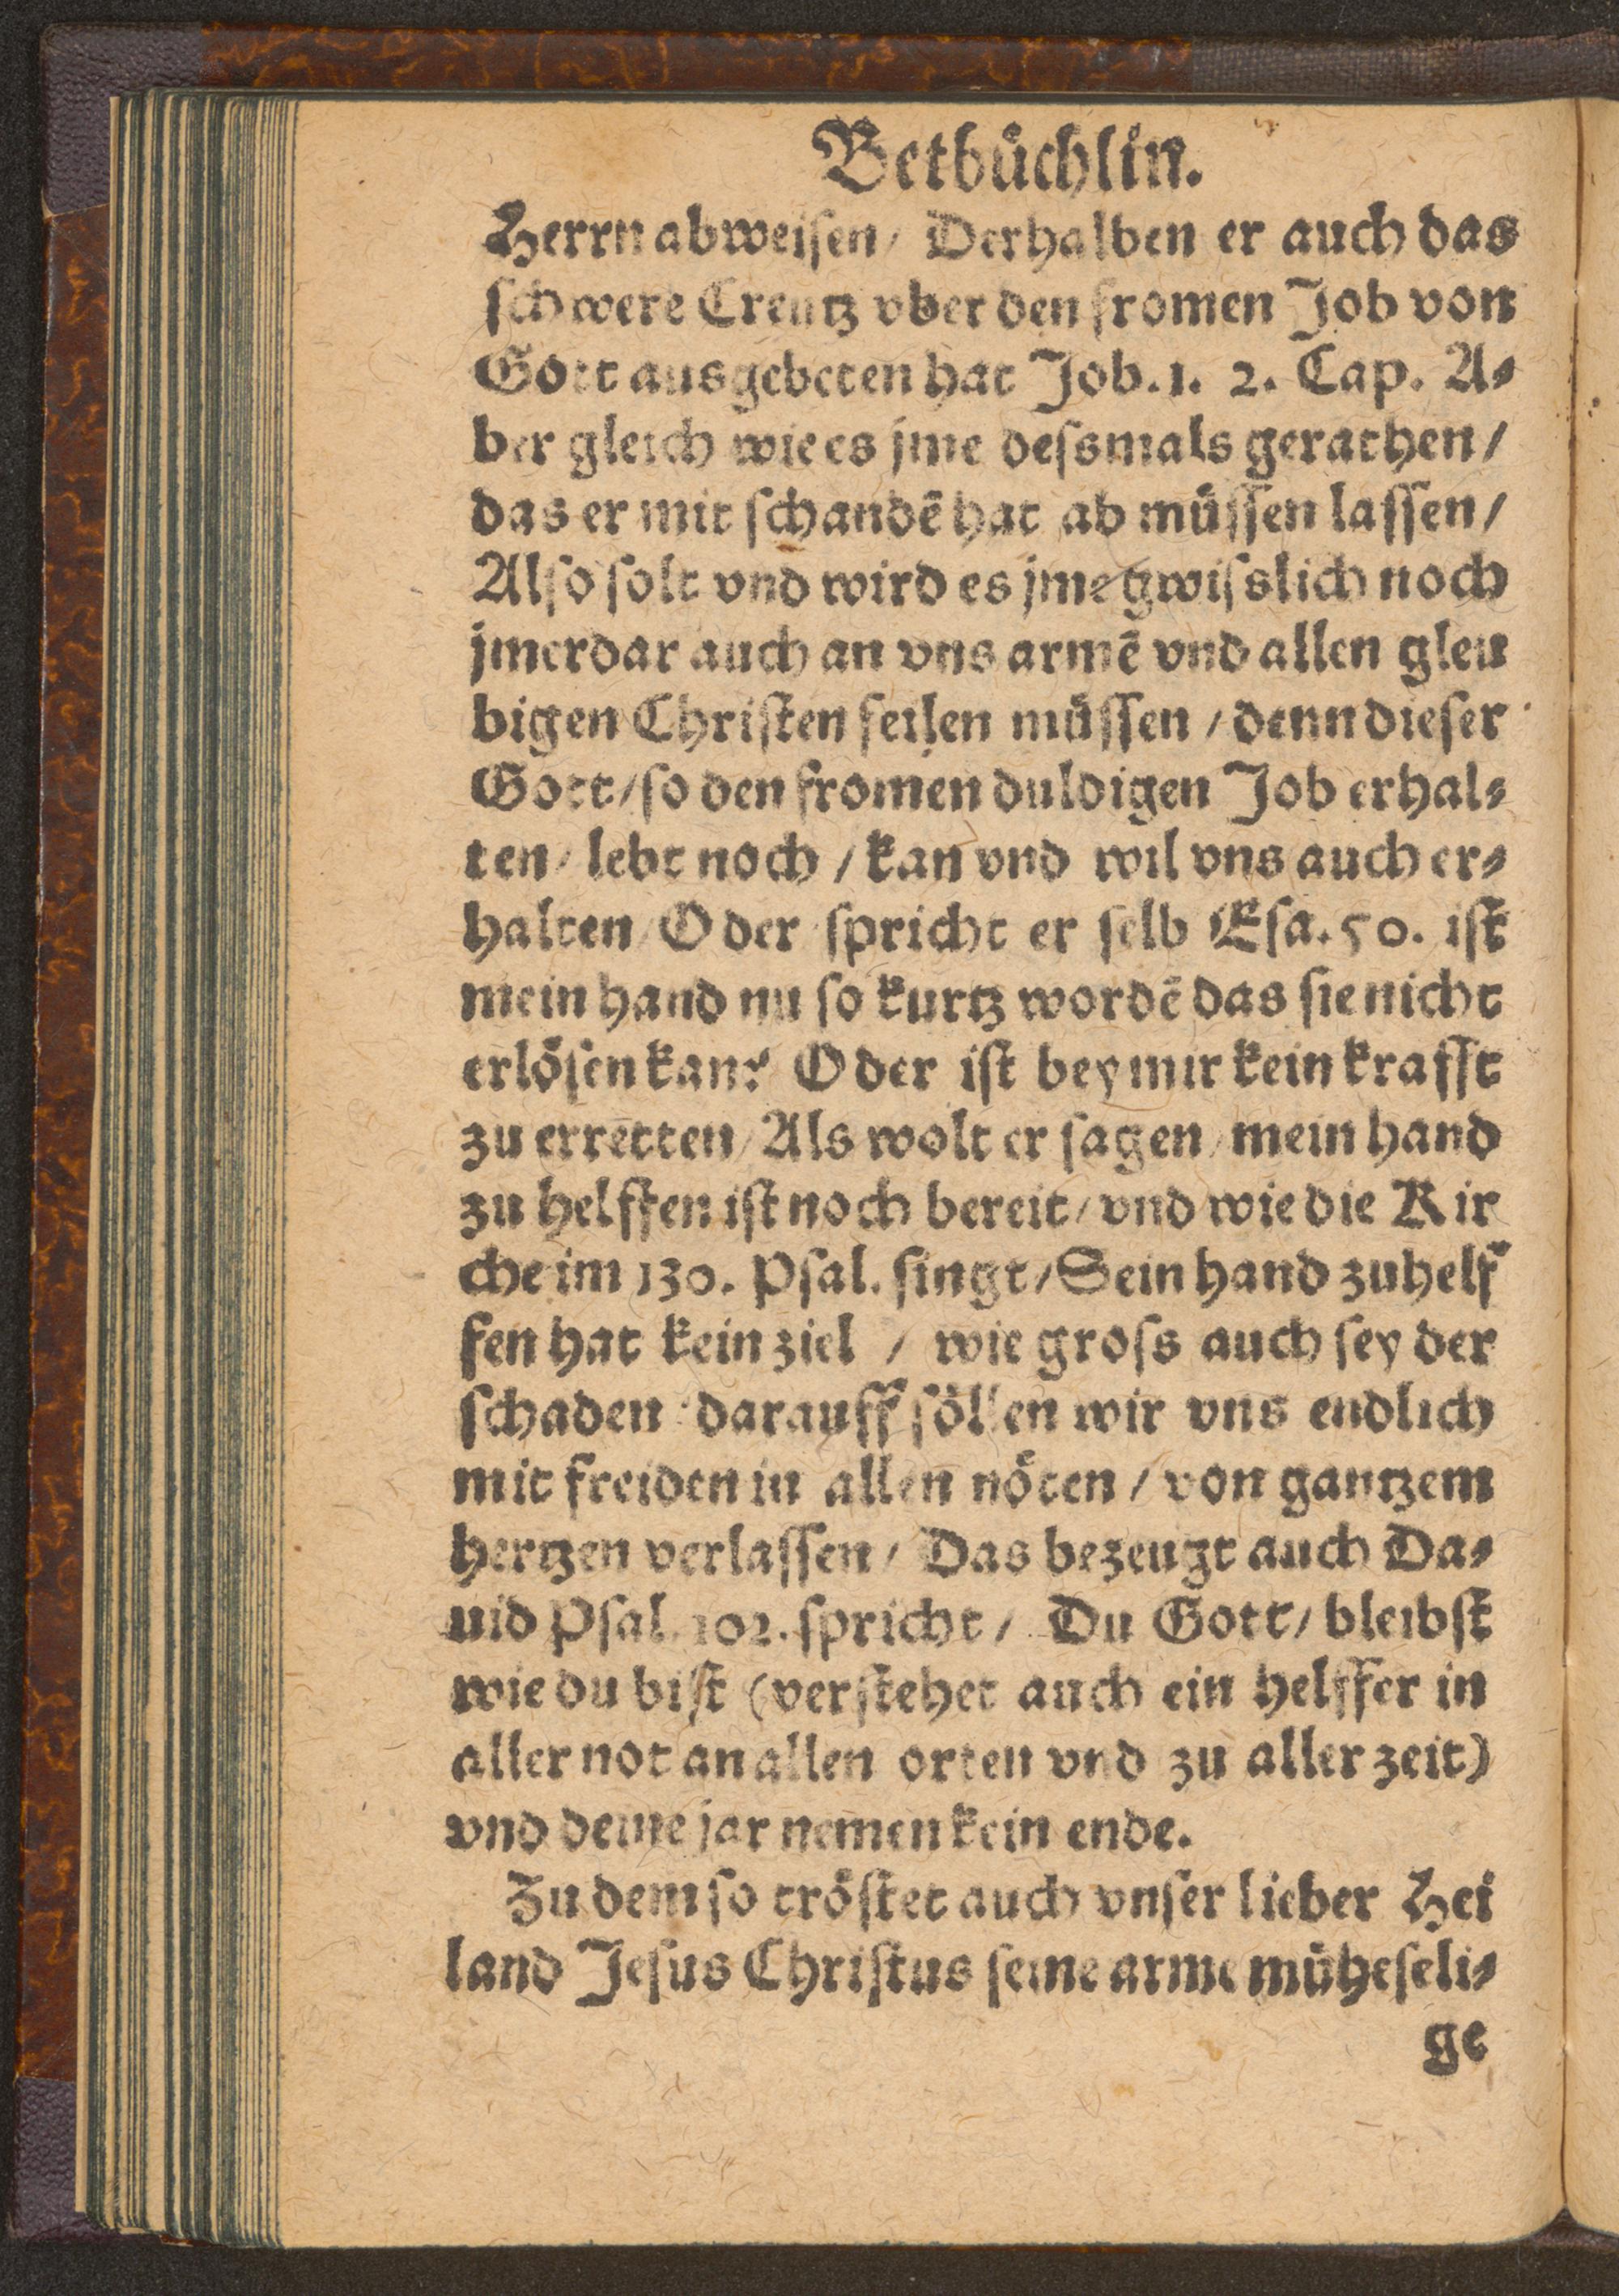 Betbüchlin.
Herrn abweiſen / Derhalben er auch das
ſchwere Creutz vber den fromen Job von
Gott ausgebeten hat Job. 1. 2. Cap. A⸗
ber gleich wie es jme deſsmals gerathen /
das er mit ſchandē hat ab müſſen laſſen /
Alſo ſolt vnd wird es jme gwiſslich noch
jmerdar auch an vns armē vnd allen gleu
bigen Chriſten feilen müſſen / denn dieſer
Gott / ſo den fromen duldigen Job erhal⸗
ten / lebt noch / kan vnd wil vns auch er⸗
halten / Oder ſpricht er ſelb Eſa. 50. iſt
mein hand nu ſo kurtz wordē das ſie nicht
erlöſen kan? Oder iſt bey mir kein krafft
zu erretten / Als wolt er ſagen / mein hand
zu helffen iſt noch bereit / vnd wie die Kir
che im 130. Pſal. ſingt / Sein hand zuhelf
fen hat kein ziel / wie groſs auch ſey der
ſchaden darauff ſöllen wir vns endlich
mit freiden in allen nöten / von gantzem
hertzen verlaſſen / Das bezeugt auch Da⸗
uid Pſal. 102. ſpricht / Du Gott / bleibſt
wie du biſt (verſtehet auch ein helffer in
aller not an allen orten vnd zu aller zeit)
vnd deine jar nemen kein ende.
Zu dem ſo tröſtet auch vnſer lieber Hei
land Jeſus Chriſtus ſeine arme müheſeli⸗
ge